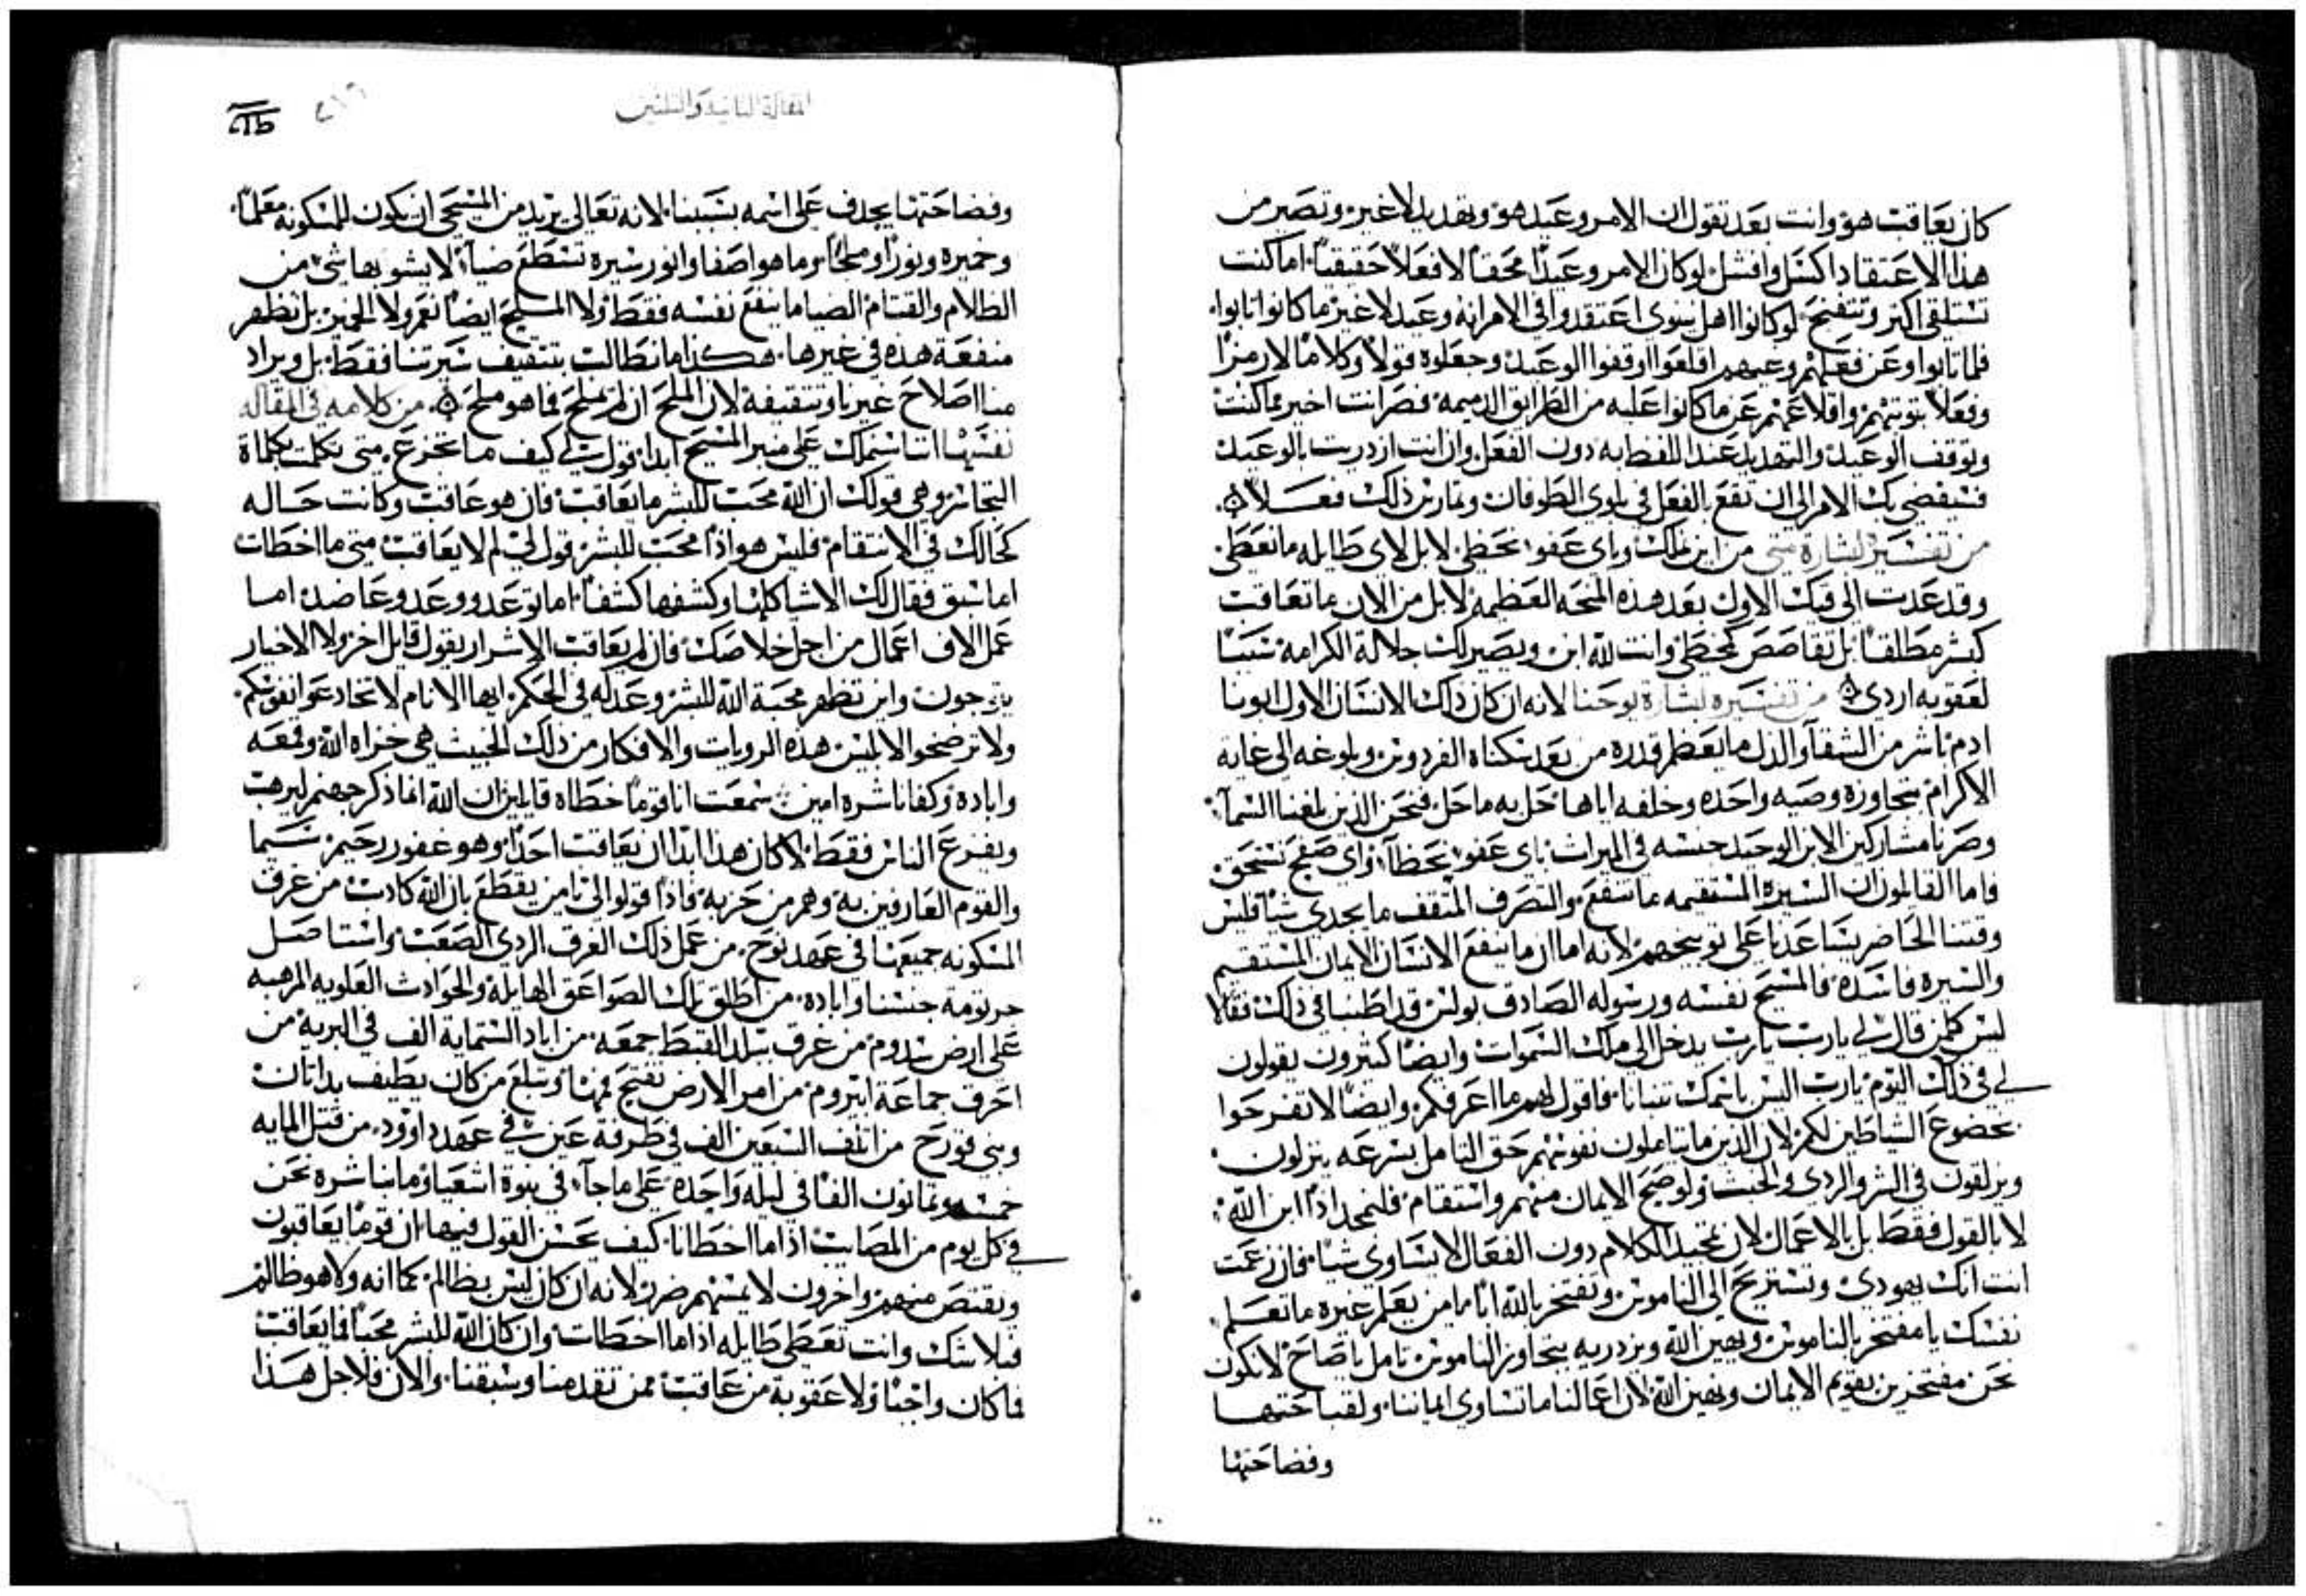 كان يعاقب هو وانت بعد تقول ان الامر وعيد هو وتهديد لا غير وتصير من
هذا الاعتقاد اكسل وافشل لو كان الامر وعيدًا محقًا لا فعلاً حقيقيًا اما كنت
تستلقي اكثر وتتفنخ لو كانوا اهل نينوى اعتقدوا في الامر انه وعيد لا غير ما كانوا تابوا
فلما تابوا وعن فعلهم وغيهم اقلعوا اوقفوا الوعيد وجعلوه قولاً وكلامًا لا رمزًا
وفعلاً بتوبتهم واقلاعهم عن ما كانوا عليه من الطرايق الدميمة فصر انت اخير مما كنت
وتوقف الوعيد والتهديد عند اللفظ به دون الفعل وان انت ازدريت بالوعيد
فسيفضي بك الامر الى ان تقع بالفعل في بلوى الطوفان وتمارس ذلك فعلاً
من تفسير بشارة متى من اين لك وباي عفو تحظى لا بل لاي طايله ما تعطى
وقد عدت الى قيك الاول بعد هذه المنحه العظيمة لا بل من الان ما تعاقب
كبشر مطلقًا بل تقاصص كمخطي وانت لله ابن ويصير لك جلالة الكرامة سببًا
لعقوبه اردى من تفسيره بشارة يوحنا لانه ان كان ذلك الانسان الاول ابونا
ادم باشر من الشقآ والذل ما يعظم قدره من بعد سكناه الفردوس وبلوغه الى غاية
الاكرام بتجاوزه وصيه واحده وخلفه اياها حل به ما حل فنحن الذين بلغنا السمآ
وصرنا مشاركين الابن الوحيد جنسه في الميراث باي عفو نحظآ واي صفح نستحق
فاما القايلون ان السيرة المستقيمه ما تنفع والتصرف المثقف ما يجدي شيًا فليس
وقتنا الحاضر يساعدنا على توبيخهم لانه اما ان ما ينفع الانسان الايمان المستقيم
والسيرة فاسده فالمسيح نفسه ورسوله الصادق بولس قد اطنبا في ذلك فقالا
ليس كلمن قال لي يارب يارب يدخل الى ملك السموات وايضًا كثيرون يقولون
لي في ذلك اليوم يارب اليس باسمك تنبانا فاقول لهم ما اعرفكم وايضًا لا تفرحوا
بخضوع الشياطين لكم لان الذين ما يتاملون نفوسهم حق التامل بسرعه ينزلون
ويزلقون في الشر والردي والخبث ولو صح الايمان منهم واستقام فلنمجد اذًا ابن الله
لا بالقول فقط بل بالاعمال لان تمجيد الكلام دون الفعال لا يساوي شيًا فان زعمت
انت انك يهودي وتستريح الى الناموس وتفتخر بالله اما يا من يعلم غيره ما تعلم
نفسك يا مفتخر بالناموس ويهين الله ويزدريه بتجاوز الناموس تامل يا صاح لا نكون
نحن مفتخرين بقويم الايمان ونهين الله لان اعمالنا ما تساوي ايماننا ولقباحتها
وفضاحتها
المقالة الثانية والثلثين
وفضاحتها يجدف على اسمه بسببنا لانه تعالى يريد من المسيحي ان يكون للمسكونه معلمًا
وخميره ونورًا وملحًا وما هو اصفا وانور سيره تسطع ضيآ لا يشوبها شي من
الظلام والقتام الضيا ما ينفع نفسه فقط ولا الملح ايضًا نعم ولا الخمير بل تظهر
منفعة هذه في غيرها هكذا ما نطالب بتثقيف سيرتنا فقط بل ويراد
منا اصلاح غيرنا وتثقيفه لان الملح ان لم يملح فما هو ملح من كلامه في المقاله
نفسها انت اسملك على منبر المسيح ابدا قول لي كيف ما تجزع متى تكلمت بكلمة
التجاسر وهي قولك ان الله محب للبشر ما يعاقب فان هو عاقب وكانت حاله
كحالك في الانتقام فليس هو اذًا محب للبشر قول لي لم لا يعاقب متى ما اخطات
اما سبق فقال لك الاشيا كلها وكشفها كشفًا اما توعد ووعد وعاضد اما
عمل الاف اعمال من اجل خلاصك فان لم يعاقب الاشرار يقول قايل اخر ولا الاخيار
يتوجون واين تظهر محبة الله للبشر وعدله في الحكم ايها الانام لا تخادعوا نفوسكم
ولا ترضخوا لابليس هذه الرويات والافكار من ذلك الخبيث هي خزاه الله وقمعه
وابادة وكفانا شره امين سمعت انا قومًا خطاه قايلين ان الله انما ذكر جهنم ليرهب
ويفزع الناس فقط لا كان هذا ابدًا ان يعاقب احدًا وهو غفور رحيم سيما
والقوم العارفين به وهم من حزبه فاذًا قولوا لي يا من يقطع بان الله كادب من غرق
المسكونه جميعها في عهد نوح من عمل ذلك الغرق الردي الصعب واستاصل
جرثومة جنسنا واباده من اطلق تلك الصواعق الهايله والحوادث العلويه المرهبه
على ارض سدوم من غرق ببلد القبط جمعه من اباد الستماية الف في البرية من
احرق جماعة ابيروم من امر الارض تفتح فمها وتبلع من كان يطيف بداتان
وبني قورح من اتلف السبعين الف في طرفة عين في عهد داوود من قتل المايه
خمسه وثمانون الفًا في ليله واحده على ما جآ في نبوة اشعيا وما نباشره نحن
في كل يوم من المصايب اذ اما اخطانا كيف يحسن القول فيها ان قومًا يعاقبون
ويقتص منهم واخرون لا يمسهم ضرر لانه ان كان ليس بظالم كما انه ولا هو ظالم
فبلا شك وانت تعطى طايله اذا ما اخطات وان كان الله للبشر محبًا فما يعاقب
فما كان واجبًا ولا عقوبة من عاقب ممن تقدمنا وسبقنا والان فلاجل هذا